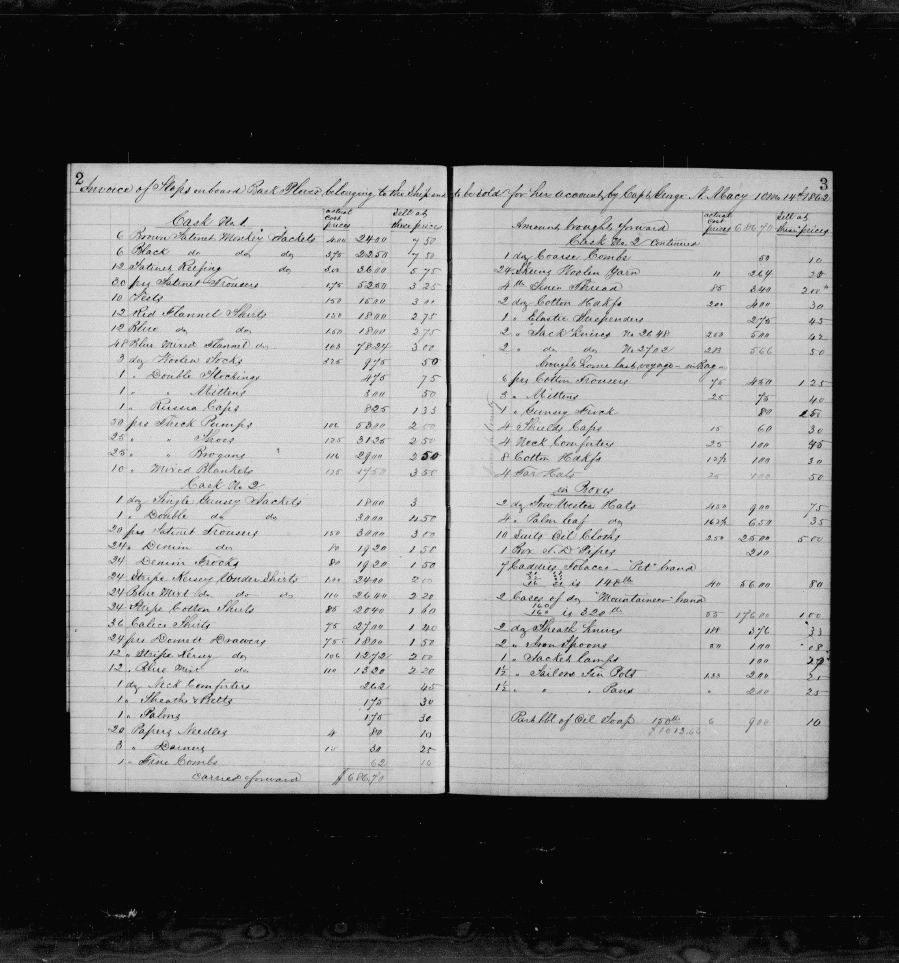 2
Invoice of Slops onboard Bark Plover belonging to the Ship and
Cask No. 1 actual cost prices Sell at these prices
6 Brown Satinet Monkey Jackets 400 2400 7 50
6 Black do do do 375 2250 7 50
12 Satinet Reefing do 300 3600 5 75
30 prs Satinet Trousers 175 5250 3 25
10 Vests 150 1500 3 00
12 Red Flannel Shirts 150 1800 2 75
12 Blue do do 150 1800 2 75
48 Blue Mixed Flannel do 163 7824 3 00
3 dz Woolen Socks 325 975 50
1 " Double Stockings 475 75
1 " " Mittens 300 50
1 " Russia Caps 825 1 33
50 prs Thick Pumps 5300 2 00
25 " " Shoes 125 3125 2 50
25 " " Brogans 116 2900 2 50
10 " Mixed Blankets 3 50
Cask No. 2
1 dz Single Gunsey Jackets 1800 3
1 " Double do do 3000 4 50
20 prs Satinet Trousers 150 3000 3 00
24 " Denim do 80 1920 1 50
24 Denim Frocks 80 1920 1 50
24 Stripe Kersey Under Shirts 100 2400 2 00
24 Blue Mixt do do do 110 2640 2 20
24 Stripe Cotton Shirts 85 2040 1 60
36 Calico Shirts 75 2700 1 40
24 prs Domett Drawers 75 1800 1 50
12 " Stripe Kersey do 106 1272 2 00
12 " Blue Mixt do 110 1320 2 20
1 dz Neck Comforters 262 45
1 " Sheaths & Belts 175 30
1 " Palms 175 30
20 Papers Needles 4 80 10
3 " Darning 10 30 25
1 " Fine Combs 62 10
carried forward $686.70
3
to be sold for her account by Capt. George N. Macy 10 mo 14th 1862
Amount brought forward actual cost prices 686.70 Sell at these prices
Cask No. 2 continued
1 dz Coarse Combs 50 10
24 Skeins Woolen Yarn 11 264 20
4 lb Linen Thread 85 340 2 00
2 dz Cotton Hdkfs 200 400 30
1 " Elastic Suspenders 275 45
2 " Jack Knives No 2648 250 500 42
2 " do do No 2702 283 566 50
brought home last voyage in Bag
6 prs Cotton Trousers 75 450 1 25
3 " Mittens 25 75 40
1 " Gunsey Frock 80 1 50
4 Shields Caps 15 60 30
4 Neck Comforters 25 100 45
8 Cotton Hdkfs 12½ 100 30
4 Tar Hats 25 100 50
in Boxes
2 dz Sou Wester Hats 450 900 75
4 " Palm leaf do 162½ 650 35
10 Suits Oil Cloths 250 2500 5 00
1 Box T. D. Pipes 210
7 Caddies Tobacco - "Pet" brand
is 140 lb 40 5600 80
2 Cases of do "Mountaineer" brand
160 160 is 320 lb 55 17600 1 00
2 dz Sheath Knives 188 376 33
2 " Iron Spoons 50 100 08
1 " Jacket Lamps 100
1½ " Sailors Tin Pots 133 200 25
1½ " " " Pans " 210 25
Part bbl of Oil Soap 150 lb 6 900 10